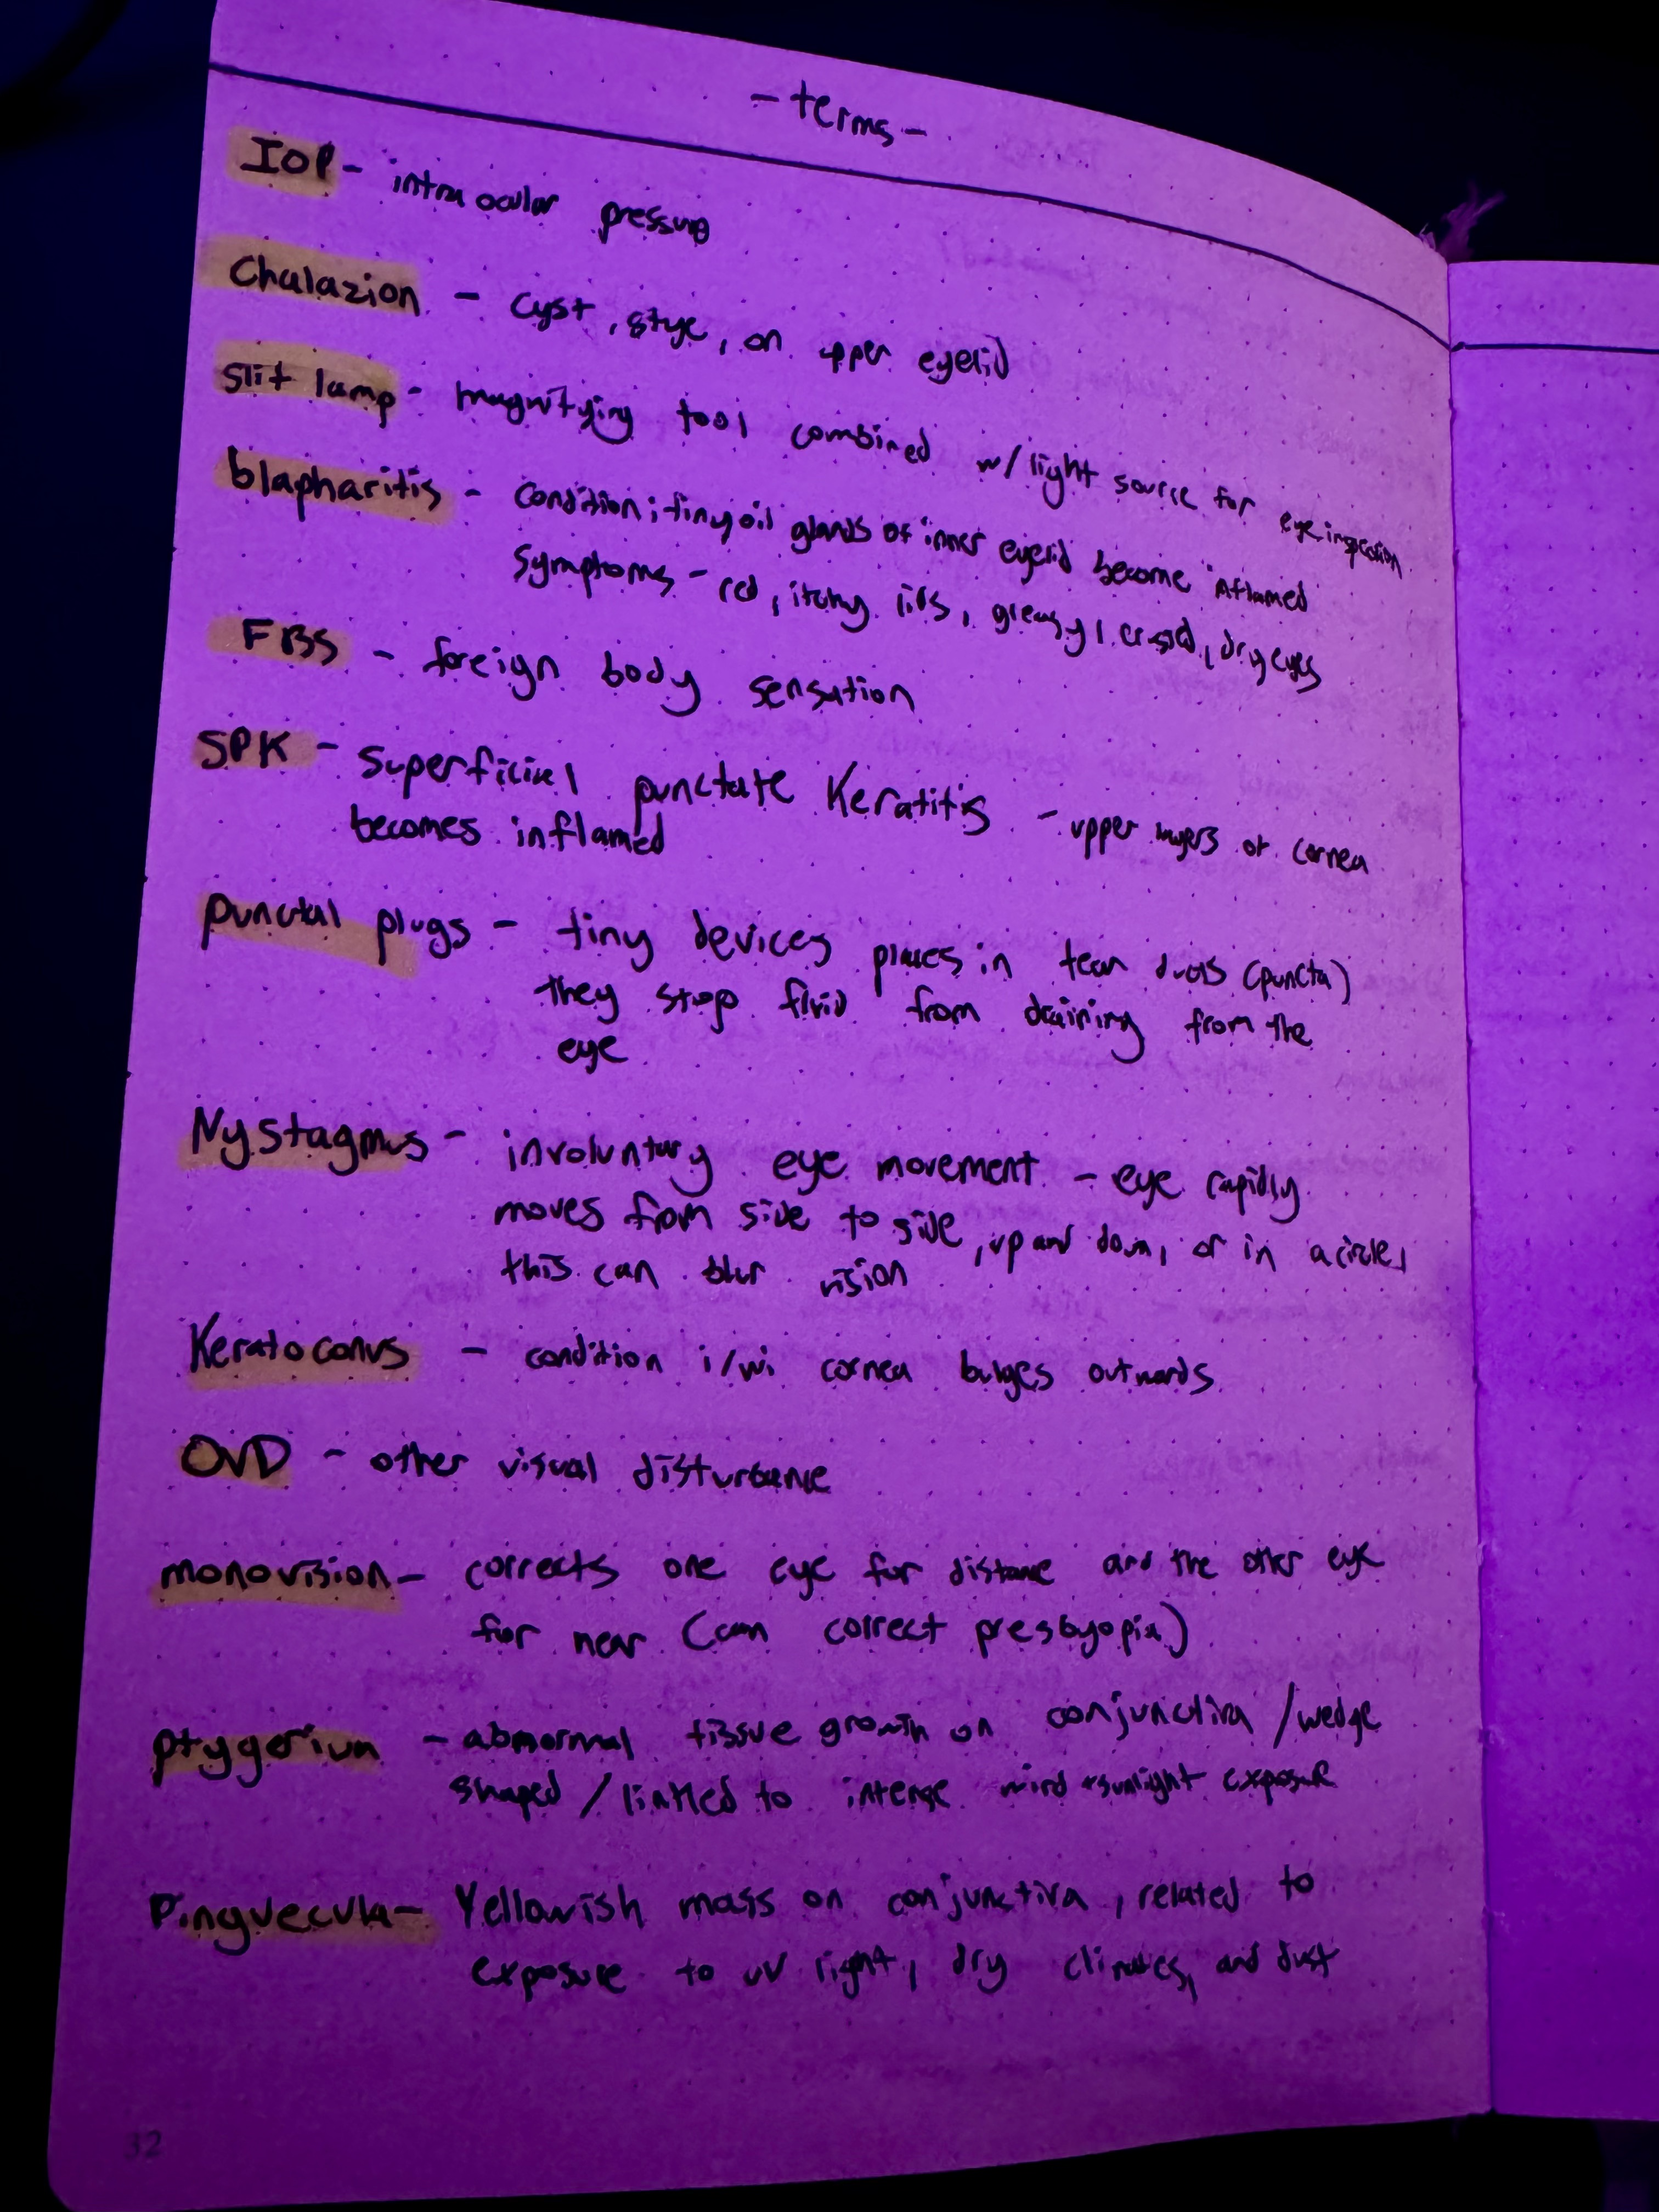 -terms-
IOP - intra ocular pressure
Chalazion - cyst, stye, on upper eyelid
slit lamp - magnifying tool combined w/ light source for eye inspection
blapharitis - condition; tiny oil glands of inner eyelid become inflamed
symptoms - red, itchy lids, greasy, crusted, dry eyes
FBS - foreign body sensation
SPK - superficial punctate Keratitis - upper layers of cornea
becomes inflamed
punctal plugs - tiny devices places in tear ducts (puncta)
they stop fluid from draining from the
eye
Nystagmus - involuntary eye movement - eye rapidly
moves from side to side, up and down, or in a circle,
this can blur vision
Keratoconus - condition i/wi cornea bulges outwards
OVD - other visual disturbance
monovision - corrects one eye for distance and the other eye
for near (can correct presbyopia)
ptygerium - abnormal tissue growth on conjunctiva / wedge
shaped / linked to intense wind + sunlight exposure
Pinguecula - Yellowish mass on conjunctiva, related to
exposure to uv light, dry climates, and dust
32